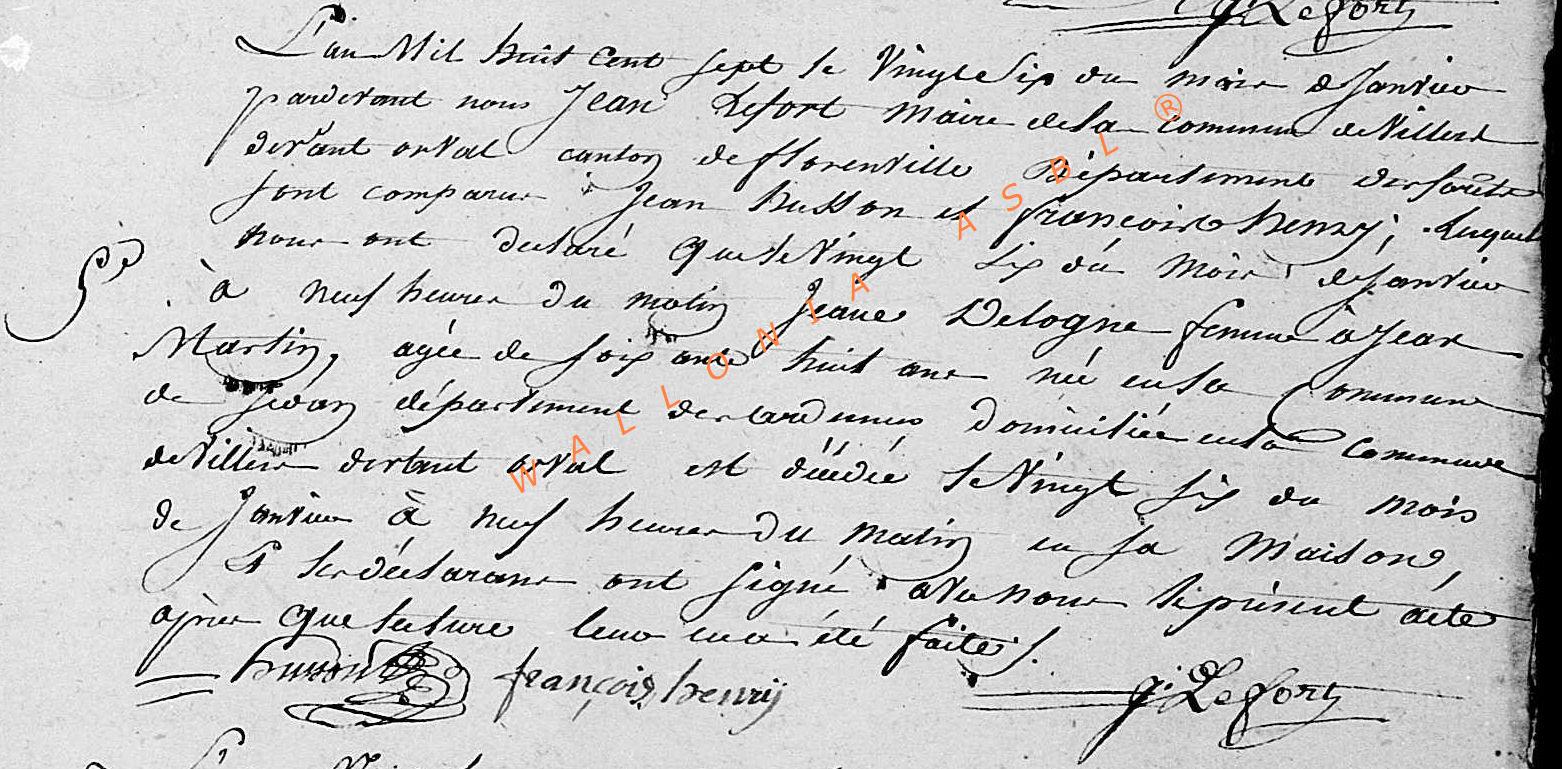 g. Lefort
L'an Mil huit cent sept le Vingt Six du mois de Janvier
pardevant nous Jean Lefort Maire de la commune de Villers
devant orval canton de florenville Département des forêts
sont comparus Jean husson et francois henry; lesquels
nous ont declaré que le Vingt Six du Mois de Janvier
à neuf heures du matin Jeane Delogne femme à Jean
Martin, agée de soixante huit ans née en la Commune
de Sedan département des ardennes domiciliée en la commune
de Villers devant orval est décédée le Vingt Six du mois
de Janvier à neuf heures du matin en sa Maison,
et les déclarans ont signé avec nous le présent acte
après que lecture leur en a été faite.
husson françois henry g. Lefort
WALLONIA ASBL ®